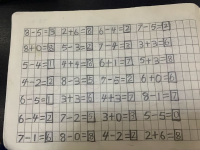 8-5=3 2+6=8 6-4=2 7-5=2
8+0=8 5-3=2 7-4=3 3+3=6
5-4=1 4+4=8 6+1=7 5+3=8
4-2=2 8-3=5 7-5=2 6+0=6
6-5=1 3+3=6 8-1=7
6-4=2 7-2=5 3+0=3 5-5=0
7-1=6 8-0=8 4-2=2 2+6=8